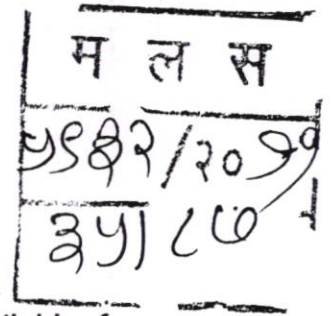 म ल स
५९३२/२०११
३५/८७